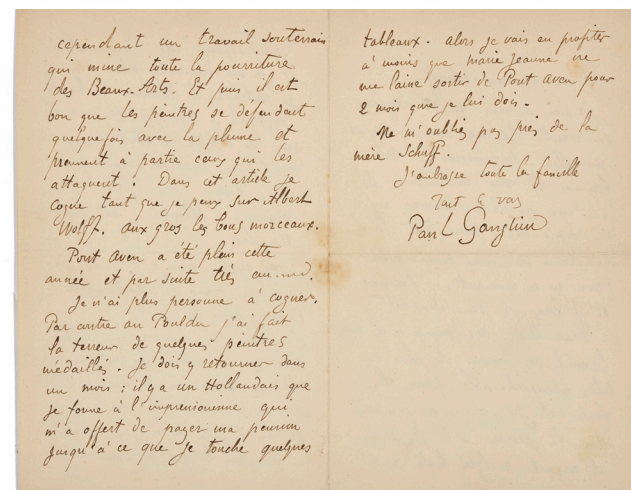 cependant un travail souterrain
qui mine toute la pourriture
des Beaux-Arts. Et puis il est
bon que les peintres se défendent
quelquefois avec la plume et
prennent à partie ceux qui les
attaquent. Dans cet article je
cogne tant que je peux sur Albert
Wolff. aux gros les bons morceaux.
Pont Aven a été plein cette
année et par suite très em..md.
Je n'ai plus personne à cogner.
Par contre au Pouldu j'ai fait
la terreur de quelques peintres
médaillés. Je dois y retourner dans
un mois : il y a un Hollandais que
je forme à l'impressionisme qui
m'a offert de payer ma pension
jusqu'à ce que je touche quelques
tableaux. Alors je vais en profiter
à moins que marie Jeanne ne
me laisse sortir de Pont Aven pour
2 mois que je lui dois.
Ne m'oubliez pas près de la
mère Schuff.
J'embrasse toute la famille
Tout à vous
Paul Gauguin